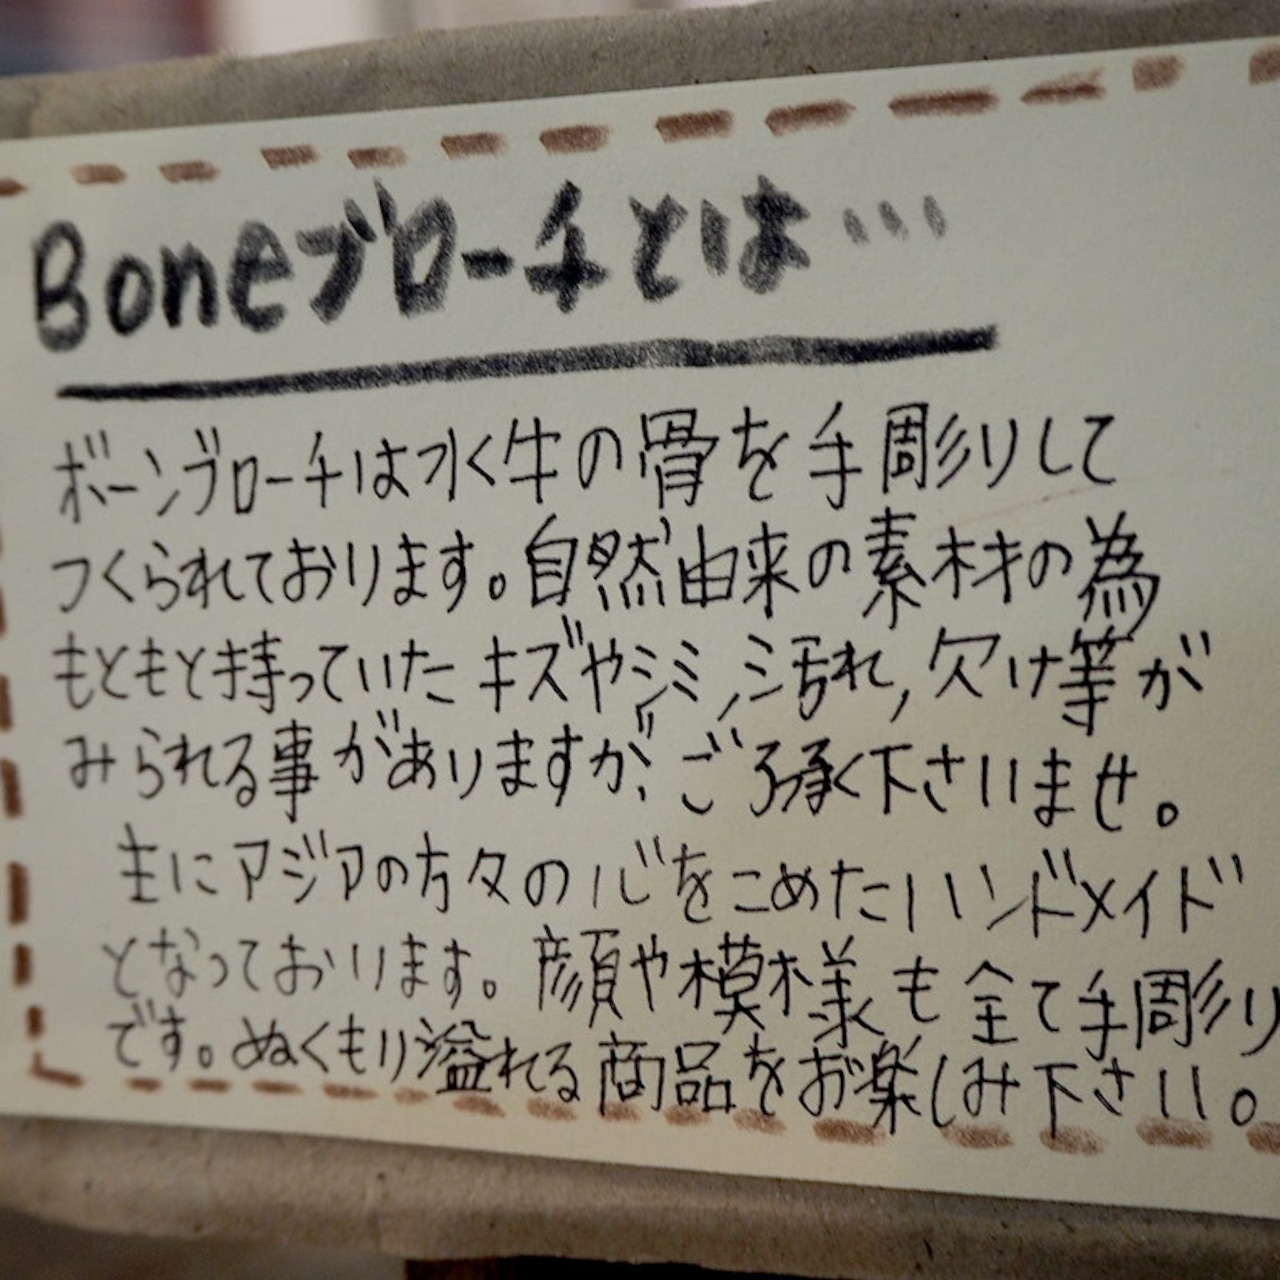 Boneブローチとは…
ボーンブローチは水く牛の骨を手彫りして
つくられております。自然由来の素材の為
もともと持っていたキズやシミ,ミ汚れ,欠け等が
みられる事がありますが、ご了承く下さいませ。
主にアジアの方々の心をこめたハンドメイド
となっております。顔や模様も全て手彫り
です。ぬくもり溢れる商品をお楽しみ下さい。